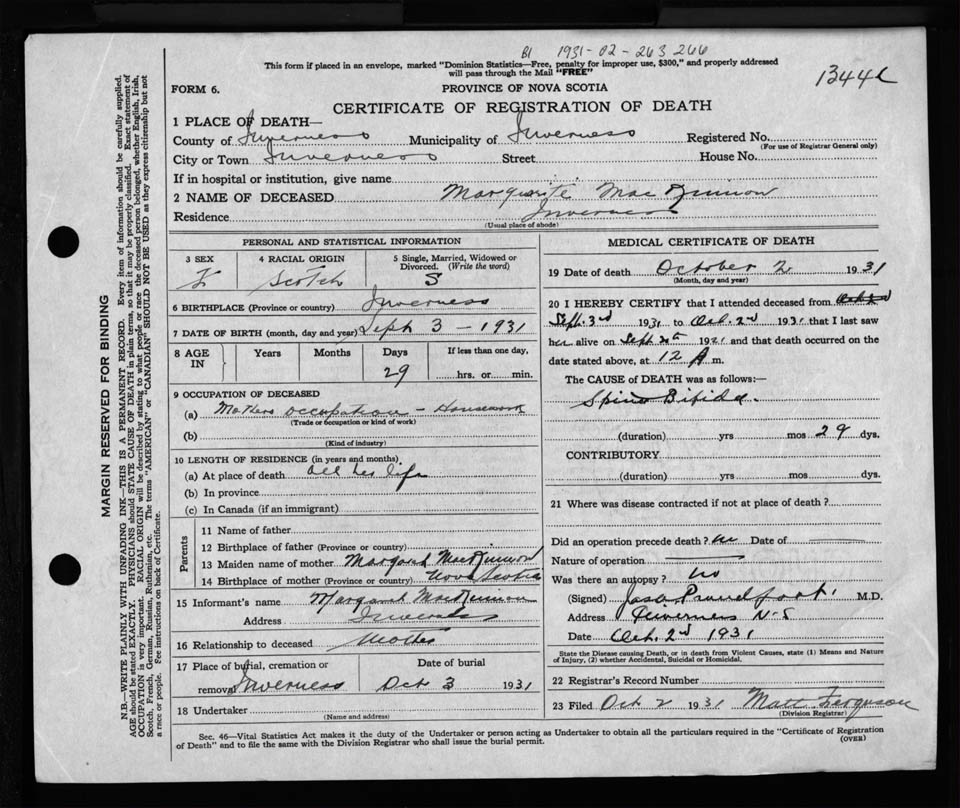 B1 1931-02-263 266
This form if placed in an envelope, marked "Dominion Statistics—Free, penalty for improper use, $300," and properly addressed
will pass through the Mail "FREE"
1344
FORM 6.
PROVINCE OF NOVA SCOTIA
CERTIFICATE OF REGISTRATION OF DEATH
1 PLACE OF DEATH—
County of Inverness Municipality of Inverness Registered No.
(For use of Registrar General only)
City or Town Inverness Street House No.
If in hospital or institution, give name
2 NAME OF DECEASED Marguerite MacKinnon
Residence Inverness
(Usual place of abode)
PERSONAL AND STATISTICAL INFORMATION
3 SEX 4 RACIAL ORIGIN 5 Single, Married, Widowed or
Divorced. (Write the word)
F Scotch S
6 BIRTHPLACE (Province or country) Inverness
7 DATE OF BIRTH (month, day and year) Sept 3 - 1931
8 AGE IN Years Months Days If less than one day,
29 hrs. or min.
9 OCCUPATION OF DECEASED
(a) Mothers occupation - Housework
(Trade or occupation or kind of work)
(b)
(Kind of industry)
10 LENGTH OF RESIDENCE (in years and months)
(a) At place of death all her life
(b) In province
(c) In Canada (if an immigrant)
Parents
11 Name of father
12 Birthplace of father (Province or country)
13 Maiden name of mother Margaret MacKinnon
14 Birthplace of mother (Province or country) Nova Scotia
15 Informant's name Margaret MacKinnon
Address Inverness
16 Relationship to deceased Mother
17 Place of burial, cremation or Date of burial
removal Inverness Oct 3 1931
18 Undertaker
(Name and address)
MEDICAL CERTIFICATE OF DEATH
19 Date of death October 2 1931
(Month, day and year)
20 I HEREBY CERTIFY that I attended deceased from
Sept. 3rd 1931 to Oct. 2nd 1931 that I last saw
her alive on Sept. 1931 and that death occurred on the
date stated above, at 12 A m.
The CAUSE of DEATH was as follows:—
Spina Bifida.
(duration) yrs mos 29 dys.
CONTRIBUTORY
(duration) yrs mos dys.
21 Where was disease contracted if not at place of death?
Did an operation precede death? no Date of
Nature of operation
Was there an autopsy? no
(Signed) Jas Proudfoot M.D.
Address Inverness N-S
Date Oct. 2nd 1931
State the Disease causing Death, or in death from Violent Causes, state (1) Means and Nature
of Injury, (2) whether Accidental, Suicidal or Homicidal.
22 Registrar's Record Number
23 Filed Oct 2 1931 Matt Ferguson
(Division Registrar)
Sec. 46—Vital Statistics Act makes it the duty of the Undertaker or person acting as Undertaker to obtain all the particulars required in the "Certificate of Registration
of Death" and to file the same with the Division Registrar who shall issue the burial permit.
(OVER)
MARGIN RESERVED FOR BINDING
N.B.—WRITE PLAINLY WITH UNFADING INK—THIS IS A PERMANENT RECORD. Every item of information should be carefully supplied.
AGE should be stated EXACTLY. PHYSICIANS should STATE CAUSE OF DEATH in plain terms, so that it may be properly classified. Exact statement of
OCCUPATION is very important. RACIAL ORIGIN will be described by stating to what people or race the deceased person belonged, whether English, Irish,
Scotch, French, German, Russian, Ruthenian, etc. The terms "AMERICAN" or "CANADIAN" SHOULD NOT BE USED as they express citizenship but not
a race or people. Fee instructions on back of Certificate.